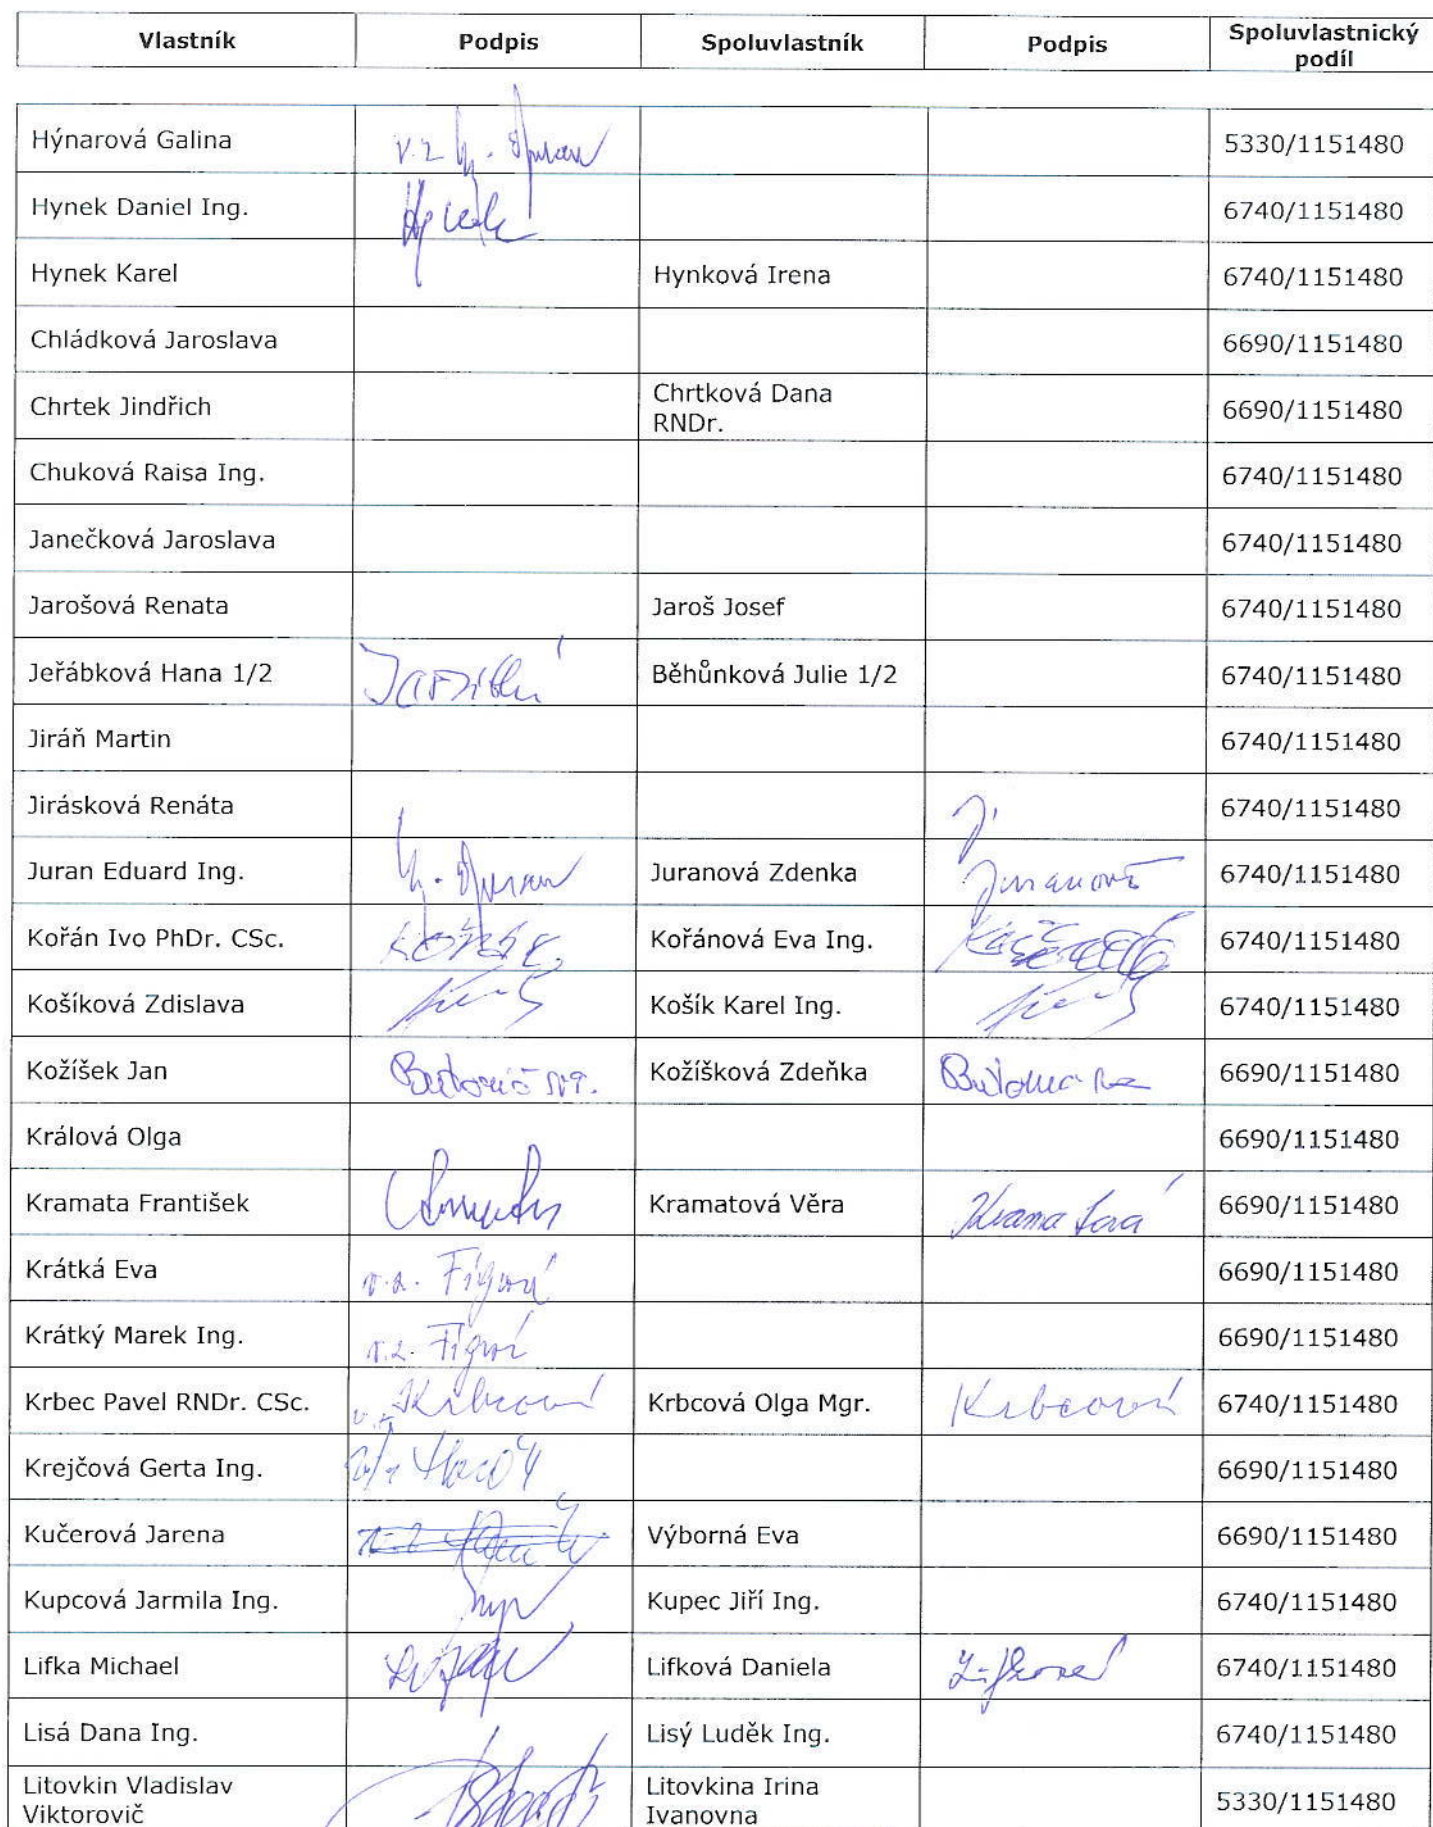 Vlastník Podpis Spoluvlastník Podpis Spoluvlastnický podíl
Hýnarová Galina v.z. 5330/1151480
Hynek Daniel Ing. Hynek 6740/1151480
Hynek Karel Hynková Irena 6740/1151480
Chládková Jaroslava 6690/1151480
Chrtek Jindřich Chrtková Dana RNDr. 6690/1151480
Chuková Raisa Ing. 6740/1151480
Janečková Jaroslava 6740/1151480
Jarošová Renata Jaroš Josef 6740/1151480
Jeřábková Hana 1/2 Běhůnková Julie 1/2 6740/1151480
Jiráň Martin 6740/1151480
Jirásková Renáta 6740/1151480
Juran Eduard Ing. Juranová Zdenka Juranová 6740/1151480
Kořán Ivo PhDr. CSc. Kořánová Eva Ing. 6740/1151480
Košíková Zdislava Košík Karel Ing. 6740/1151480
Kožíšek Jan Kožíšková Zdeňka 6690/1151480
Králová Olga 6690/1151480
Kramata František Kramatová Věra Kramatová 6690/1151480
Krátká Eva v.z. Fígrová 6690/1151480
Krátký Marek Ing. v.z. 6690/1151480
Krbec Pavel RNDr. CSc. v.z. Krbcová Krbcová Olga Mgr. Krbcová 6740/1151480
Krejčová Gerta Ing. 6690/1151480
Kučerová Jarena Výborná Eva 6690/1151480
Kupcová Jarmila Ing. Kupec Jiří Ing. 6740/1151480
Lifka Michael Lifková Daniela Lifková 6740/1151480
Lisá Dana Ing. Lisý Luděk Ing. 6740/1151480
Litovkin Vladislav Viktorovič Litovkina Irina Ivanovna 5330/1151480